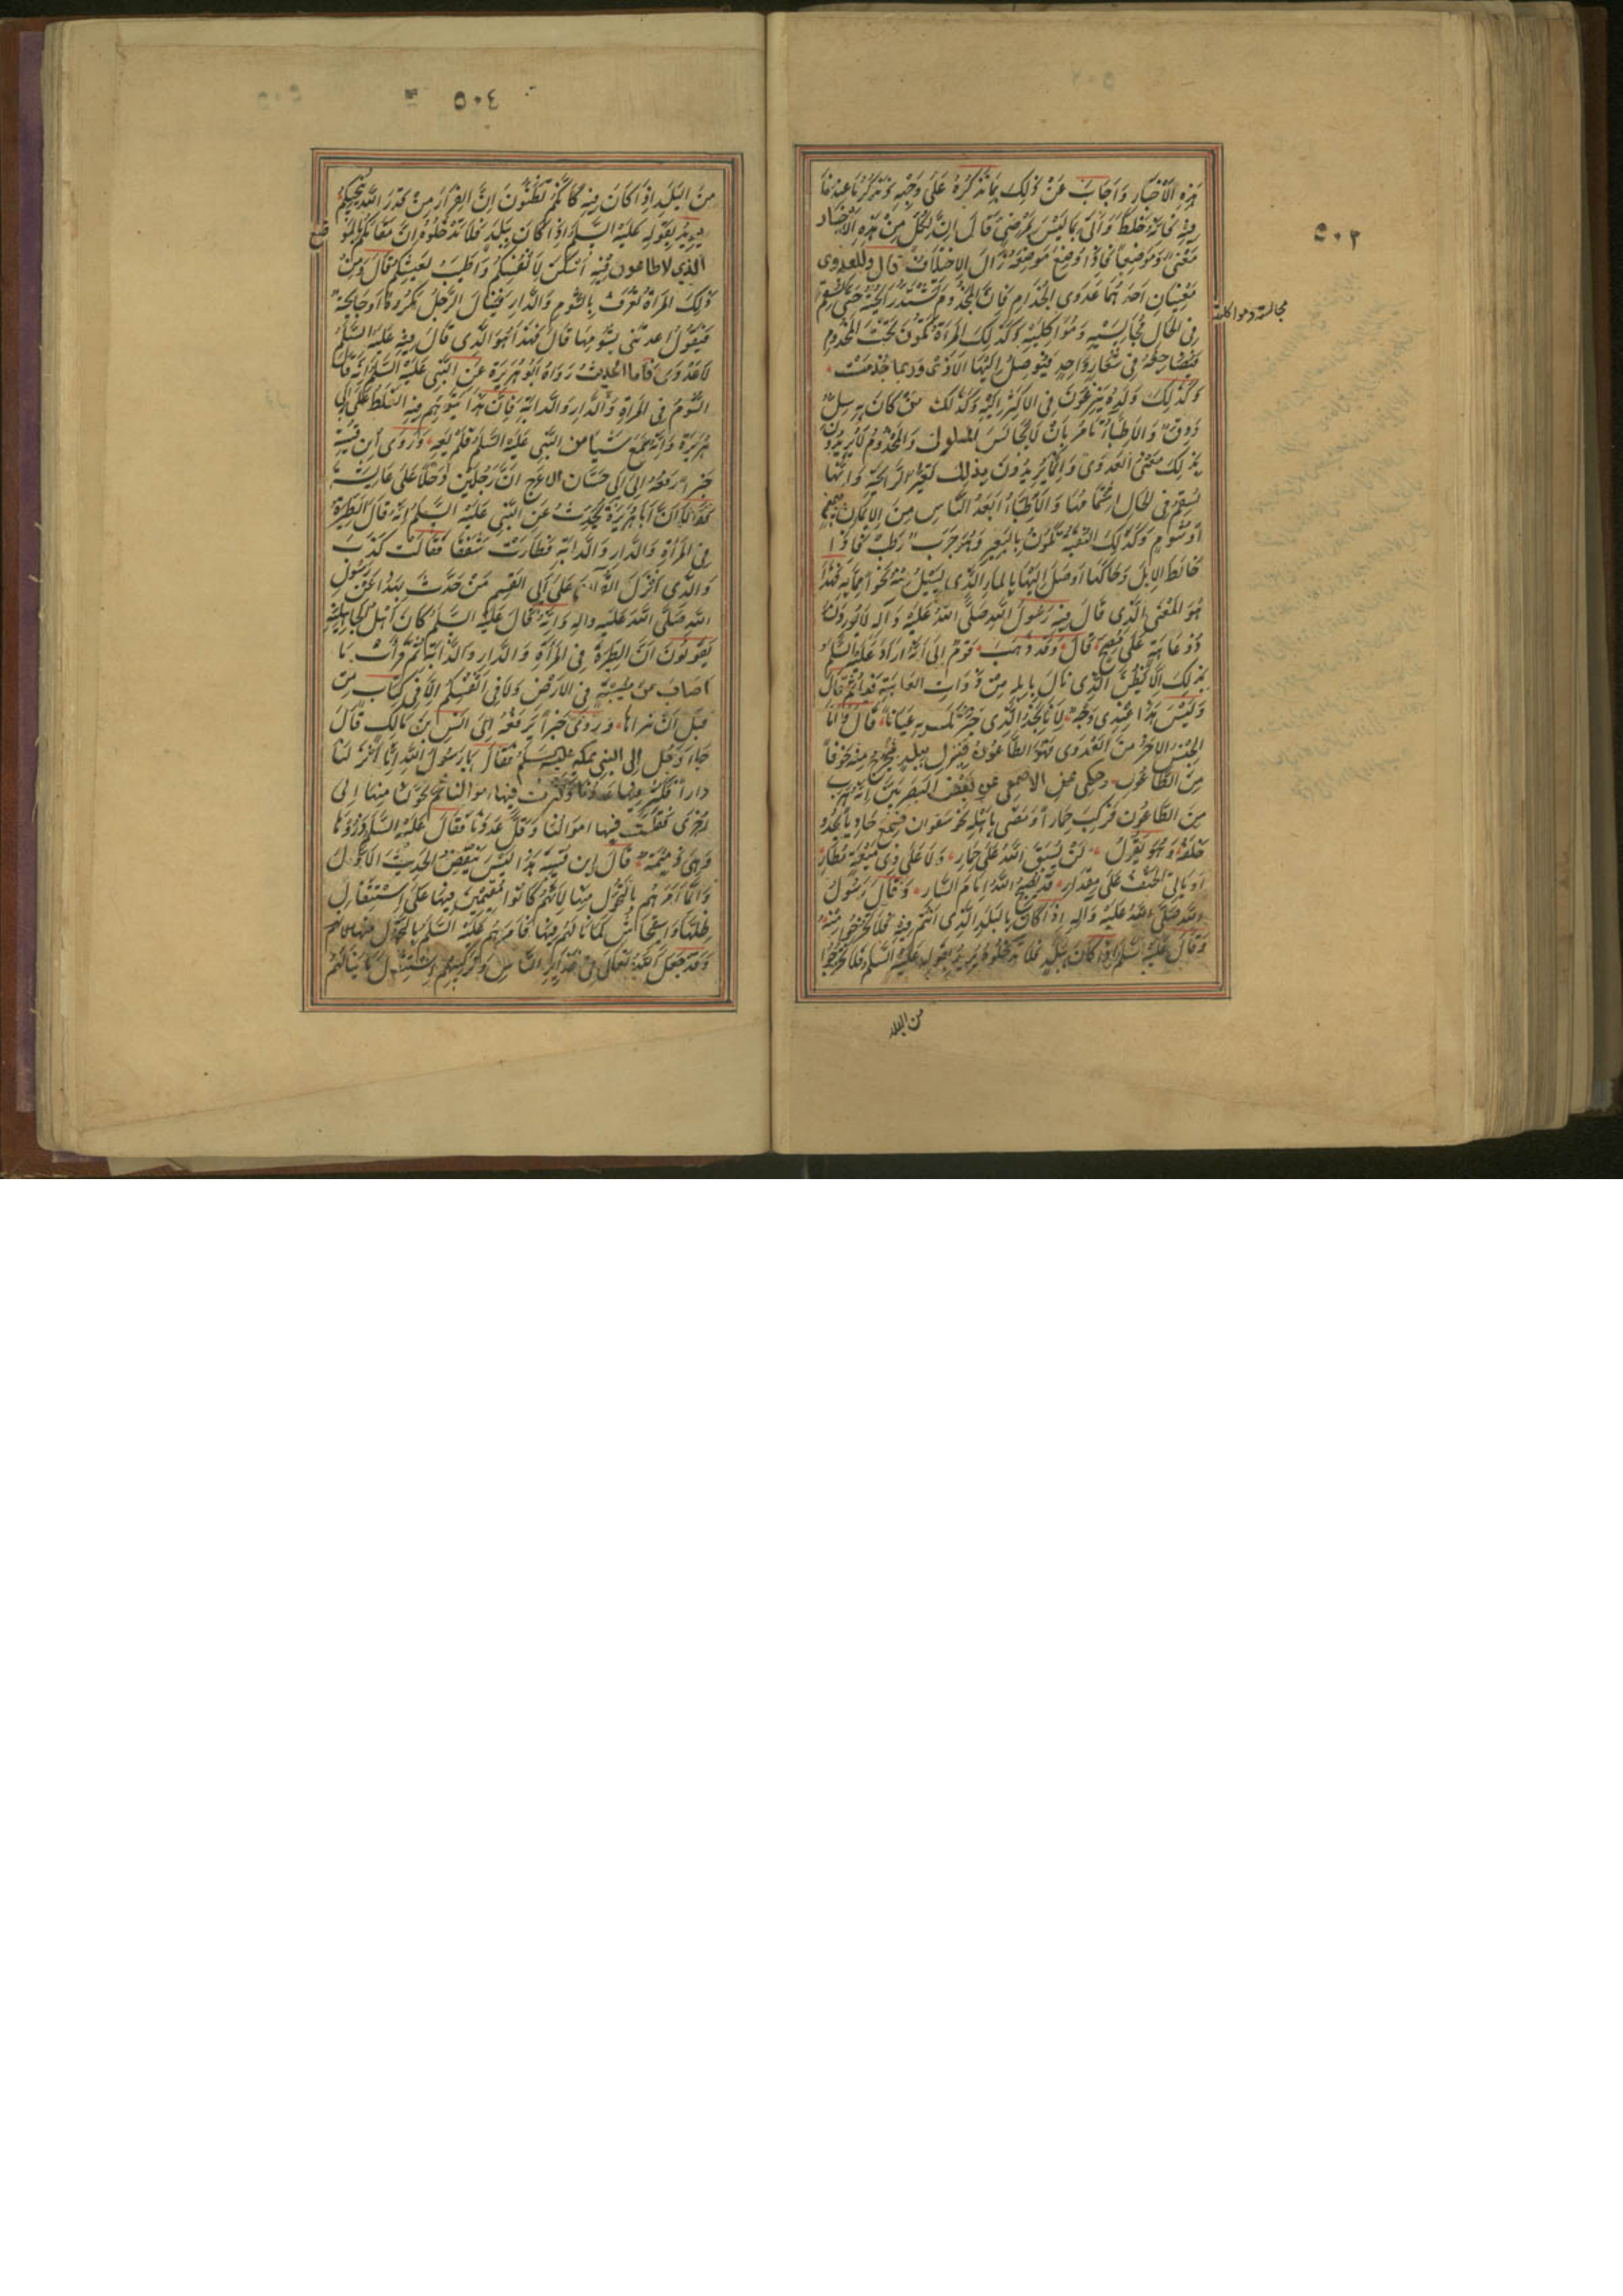 ٥٠٣
هذه الاخبار واجاب عن ذلك بما نذكره على وجهه ونذكر ما عندنا
فيه فانه خلط واتى بما ليس بمرضى قال ان لكل من هذه الاخبار
معنى وموضعا فاذا وضع موضعه زال الاختلاف قال وللعدوى
معنيان احدهما عدوى الجذام فان المجذوم تشتد رايحته حتى يسقم
فى الحال مجالسيه ومواكليه وكذلك المراة تكون تحت المجذوم
مجالسته ومواكلته
فيضاجعها فى شعار واحد فيوصل اليها الاذى وربما جذمت
وكذلك ولده ينزعون فى الاكثر اليه وكذلك من كان به سل
ودق والاطباء تامر بان لا يجالس المسلول والمجذوم لا يريدون
بذلك معنى العدوى وانما يريدون بذلك تغير الرايحة وانها
تسقم فى الحال اشتمامها والاطباء ابعد الناس من الايمان بيمن
او شوم وكذلك النقبة تكون بالبعير وهو جرب رطب فاذا
خالط الابل وحاكها اوصل اليها بالماء الذى يسيل منه نحوا مما به فهذا
هو المعنى الذى قال فيه رسول الله صلى الله عليه وآله لا يوردن
ذو عاهة على مصح قال وقد ذهب قوم الى انه اراد عليه السلم
بذلك الا يظن الذى نال بابله من ذوات العاهة فياثم قال
وليس هذا عندى وجه لانا نجد الذى خبرتك به عيانا قال واما
الجنس الاخر من العدوى فهو الطاعون ينزل ببلد فيخرج منه خوفا
من الطاعون وحكى عن الاصمعى عن بعض البصريين انه هرب
من الطاعون فركب حمارا ومضى باهله نحو سفوان فسمع حاديا يحدو
خلفه وهو يقول لن يسبق الله على حمار ولا على ذى ميعة مطار
او ياتى الحتف على مقدار قد يصبح الله امام السار وقال رسول
الله صلى الله عليه واله اذا كان بالبلد الذى انتم فيه فلا تخرجوا منه
وقال عليه السلم اذا كان ببلد فلا تدخلوه يريد بقوله عليه السلم فلا تخرجوا
من البلد
٥٠٤
من البلد اذا كان فيه كانكم تظنون ان الفرار من قدر الله ينجيكم
يريد بقوله عليه السلم اذا كان ببلد فلا تدخلوه ان مقامكم بالمو
ضع
الذي لا طاعون فيه اسكن لانفسكم واطيب لعيشكم قال ومن
ذلك المراة تعرف بالشوم والدار فينال الرجل مكروها او جايحة
فيقول اعدتنى بشومها قال فهذا هو الذى قال فيه عليه السلم
لا عدوى فاما الحديث رواه ابو هريرة عن النبى عليه السلم انه قال
الشوم فى المراة والدار والدابة فان هذا يتوهم فيه الغلط على ابى
هريرة وانه سمع شيا من النبى عليه السلم فلم يعه وروى ابن قتيبة
خبرا رفعه الى ابى حسان الاعرج ان رجلين دخلا على عايشة
فقالا ان ابا هريرة يحدث عن النبى عليه السلم انه قال الطيرة
فى المراة والدار والدابة فطارت شفقا فقالت كذب
والذى انزل القرآن على ابى القسم من حدث بهذا عن رسول
الله صلى الله عليه واله وانما قال عليه السلم كان اهل الجاهلية
يقولون ان الطيرة فى المراة والدار والدابة ثم قرات ما
اصاب من مصيبة فى الارض ولا فى انفسكم الا فى كتاب من
قبل ان نبراها وروى خبرا يرفعه الى انس بن مالك قال
جاء رجل الى النبى عليه السلم فقال يا رسول الله انا نزلنا
دارا فكثر فيها عددنا وكثرت فيها اموالنا ثم تحولنا منها الى
اخرى فقلت فيها اموالنا وقل عددنا فقال عليه السلم ذروها
وهى ذميمة قال ابن قتيبة هذا ليس ينقض الحديث الاول
وانما امرهم بالتحول منها لانهم كانوا مقيمين فيها على استثقال
ظلها واستيحاش لما نالهم فيها فامرهم عليه السلم بالتحول منها
وقد جعل الله تعالى فى غرايز الناس وتركيبهم استثقال ما نالهم